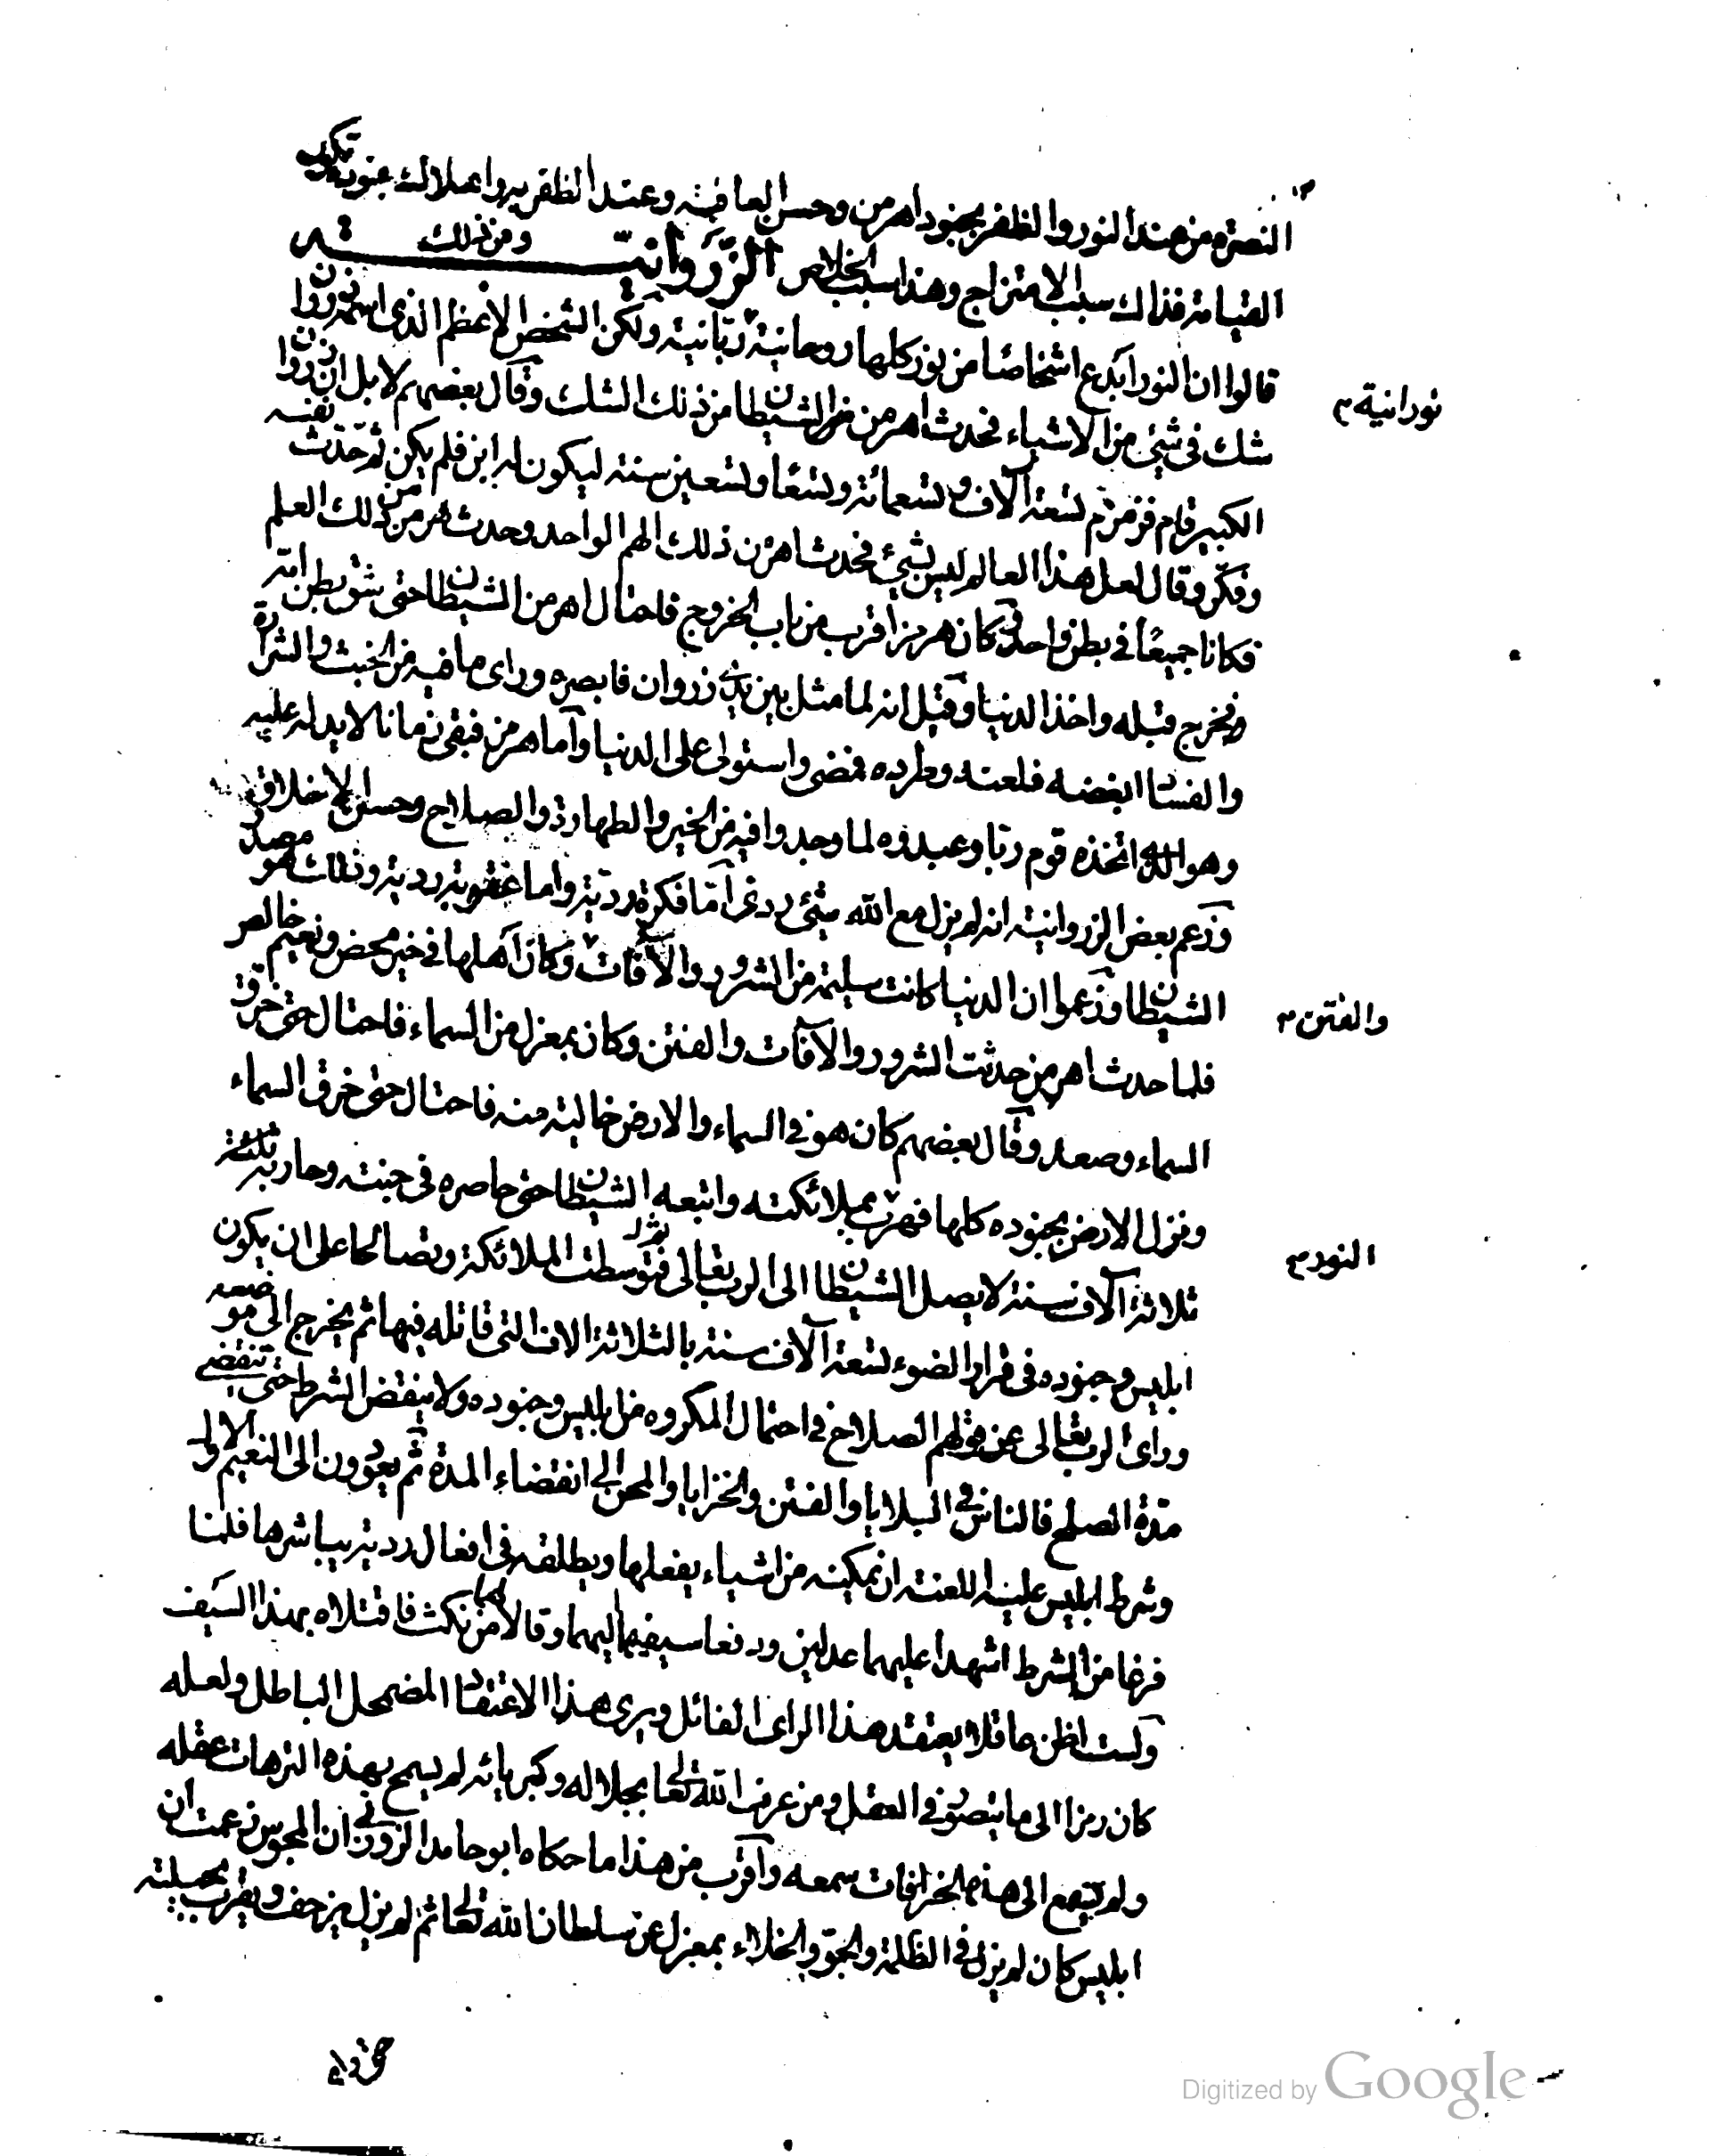 النصرة من عند النور والظفر بجنود اهرمن وحسن العاقبة وعند الظفر به واهلاك جنوده تكون
القيامة فذاك سبب الامتزاج وهذا سبب الخلاص الزروانية ومن ذلك
قالوا ان النور ابدع اشخاصا من نور كلها روحانية ربانية ولكن الشخص الاعظم الذى اسمه زروان
نورانية
شك فى شئ من الاشياء فحدث اهرمن الشيطان من ذلك الشك وقال بعضهم لا بل ان زروان
الكبير قام فزمزم تسعة آلاف وتسعمائة وتسعا وتسعين سنة ليكون له ابن فلم يكن ثم حدث نفسه
وفكر وقال لعل هذا العالم ليس بشئ فحدث اهرمن من ذلك الهم الواحد وحدث هرمز من ذلك العلم
فكانا جميعا فى بطن واحد وكان هرمز اقرب من باب الخروج فاحتال اهرمن الشيطان حتى شق بطن امه
فخرج قبله واخذ الدنيا وقيل انه لما مثل بين يدي زروان فابصره وراى ما فيه من الخبث والشرارة
والفساد ابغضه فلعنه وطرده فمضى واستولى على الدنيا واما هرمز فبقى زمانا لا يد له عليه
وهو الذى اتخذه قوم ربا وعبدوه لما وجدوا فيه من الخير والطهارة والصلاح وحسن الاخلاق
وزعم بعض الزروانية انه لم يزل مع الله شئ ردى اما فكرة ردية واما عفونة ردية وذلك هو مصدر
الشيطان وزعموا ان الدنيا كانت سليمة من الشرور والآفات وكان اهلها فى خير محض ونعيم خالص
والفتن
فلما حدث اهرمن حدثت الشرور والآفات والفتن وكان بمعزل من السماء فاحتال حتى خرق
السماء وصعد وقال بعضهم كان هو فى السماء والارض خالية منه فاحتال حتى خرق السماء
ونزل الارض بجنوده كلها فهرب بملائكته واتبعه الشيطان حتى حاصره فى جنته وحاربه ثلثة
النور
ثلاثة آلاف سنة لا يصل الشيطان الى الرب تعالى فتوسطت الملائكة وتصالحا على ان يكون
ابليس وجنوده فى قرار الضوء تسعة آلاف سنة بالثلاثة الاف التى قاتله فيها ثم يخرج الى موضعه
وراى الرب تعالى عن قولهم الصلاح فى احتمال المكروه من ابليس وجنوده ولا ينقض الشرط حتى تنقضى
مدة الصلح فالناس فى البلايا والفتن والخزايا والمحن الى انقضاء المدة ثم يعودون الى النعيم الاول
وشرط ابليس عليه اللعنة ان يمكنه من اشياء يفعلها ويطلقه فى افعال ردية يباشرها فلما
فرغا من الشرط اشهدا عليهما عدلين ودفعا سيفيهما اليهما وقالا لهما من نكث فاقتلاه بهذا السيف
ولست اظن عاقلا يعتقد هذا الراى الفائل ويرى هذا الاعتقاد المضمحل الباطل ولعله
كان رمزا الى ما يتصور فى العقل ومن عرف الله تعالى بجلاله وكبريائه لم يسمح بهذه الترهات عقله
ولم يسمع الى هذه الخرافات سمعه واقرب من هذا ما حكاه ابو حامد الزوزنى ان المجوس زعمت ان
ابليس كان لم يزل فى الظلمة والجو والخلاء بمعزل عن سلطان الله تعالى ثم لم يزل يزحف ويقرب بحيلته
Digitized by Google